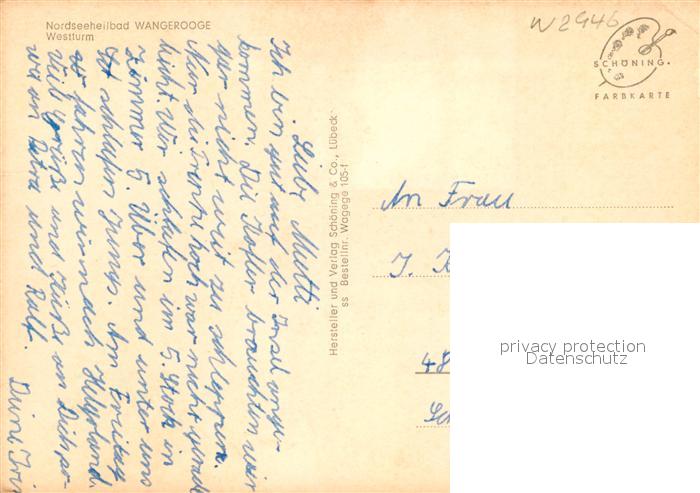 Nordseeheilbad WANGEROOGE
Westturm
W2946
SCHÖNING
FARBKARTE
Liebe Mutti
Ich bin gut auf der Insel ange-
kommen. Die Koffer brauchten wir
gar nicht weit zu schleppen.
Nur die Treppe hoch war nicht gerade
leicht. Wir schlafen im 5. Stock in
Zimmer 5. Über und unter uns
schlafen Jungs. Am Freitag
fahren wir nach Helgoland.
Viele Grüße und Küße an Dich so-
wie an Petra und Ralf.
Deine
Hersteller und Verlag Schöning & Co., Lübeck
ss Bestellnr. Wagege 105-f
An Frau
J. K
48
privacy protection
Datenschutz